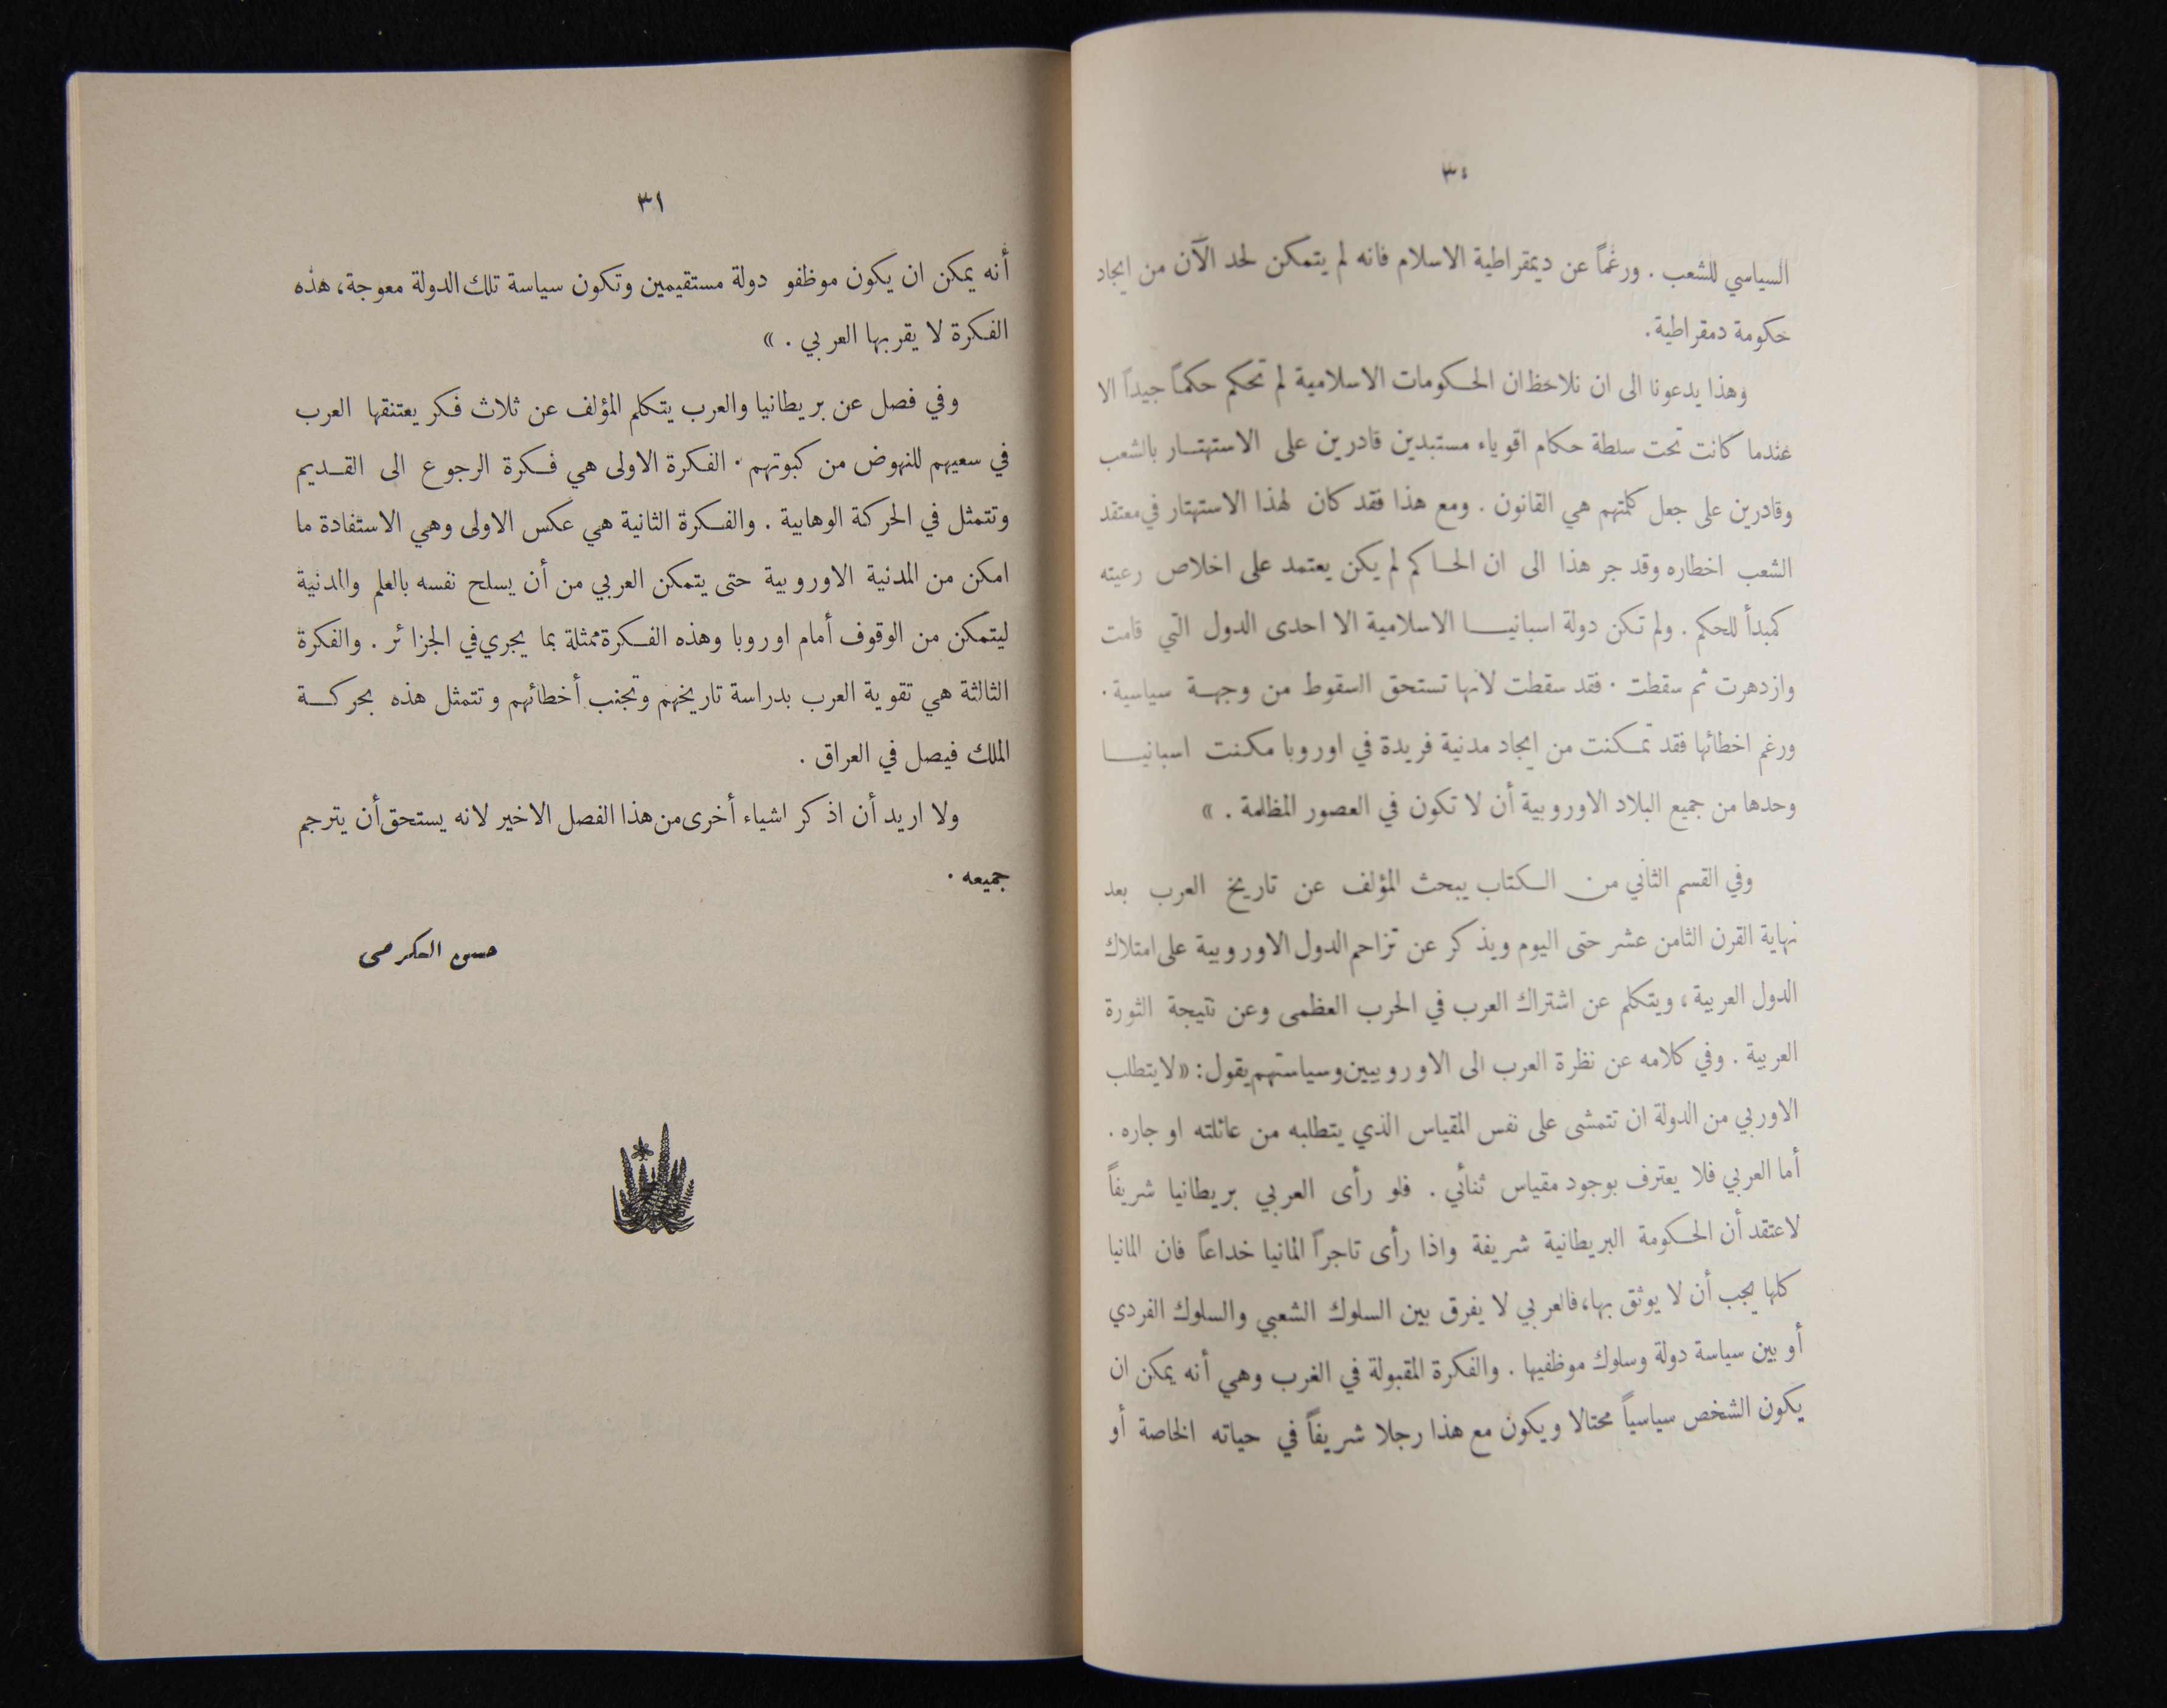 ٣٠
السياسي للشعب . ورغماً عن ديمقراطية الاسلام فانه لم يتمكن لحد الآن من ايجاد
حكومة دمقراطية.
وهذا يدعونا الى ان نلاحظ ان الحكومات الاسلامية لم تحكم حكماً جيداً الا
عندما كانت تحت سلطة حكام اقوياء مستبدين قادرين على الاستهتار بالشعب
وقادرين على جعل كلمتهم هي القانون . ومع هذا فقد كان لهذا الاستهتار في معتقد
الشعب اخطاره وقد جر هذا الى ان الحاكم لم يكن يعتمد على اخلاص رعيته
كمبدأ للحكم . ولم تكن دولة اسبانيا الاسلامية الا احدى الدول التي قامت
وازدهرت ثم سقطت . فقد سقطت لانها تستحق السقوط من وجهة سياسية .
ورغم اخطائها فقد تمكنت من ايجاد مدنية فريدة في اوروبا مكنت اسبانيا
وحدها من جميع البلاد الاوروبية أن لا تكون في العصور المظلمة . »
وفي القسم الثاني من الكتاب يبحث المؤلف عن تاريخ العرب بعد
نهاية القرن الثامن عشر حتى اليوم ويذكر عن تزاحم الدول الاوروبية على امتلاك
الدول العربية ، ويتكلم عن اشتراك العرب في الحرب العظمى وعن نتيجة الثورة
العربية . وفي كلامه عن نظرة العرب الى الاوروبيين وسياستهم يقول : « لا يتطلب
الاوربي من الدولة ان تتمشى على نفس المقياس الذي يتطلبه من عائلته او جاره .
أما العربي فلا يعترف بوجود مقياس ثنائي . فلو رأى العربي بريطانيا شريفاً
لاعتقد أن الحكومة البريطانية شريفة واذا رأى تاجراً المانيا خداعاً فان المانيا
كلها يجب أن لا يوثق بها، فالعربي لا يفرق بين السلوك الشعبي والسلوك الفردي
أو بين سياسة دولة وسلوك موظفيها . والفكرة المقبولة في الغرب وهي أنه يمكن ان
يكون الشخص سياسياً محتالا ويكون مع هذا رجلا شريفاً في حياته الخاصة أو
٣١
أنه يمكن ان يكون موظفو دولة مستقيمين وتكون سياسة تلك الدولة معوجة، هذه
الفكرة لا يقربها العربي . »
وفي فصل عن بريطانيا والعرب يتكلم المؤلف عن ثلاث فكر يعتنقها العرب
في سعيهم للنهوض من كبوتهم . الفكرة الاولى هي فكرة الرجوع الى القديم
وتتمثل في الحركة الوهابية . والفكرة الثانية هي عكس الاولى وهي الاستفادة ما
امكن من المدنية الاوروبية حتى يتمكن العربي من أن يسلح نفسه بالعلم والمدنية
ليتمكن من الوقوف أمام اوروبا وهذه الفكرة ممثلة بما يجري في الجزائر . والفكرة
الثالثة هي تقوية العرب بدراسة تاريخهم وتجنب أخطائهم وتتمثل هذه بحركة
الملك فيصل في العراق .
ولا اريد أن اذكر اشياء أخرى من هذا الفصل الاخير لانه يستحق أن يترجم
جميعه .
حسن الكرمي